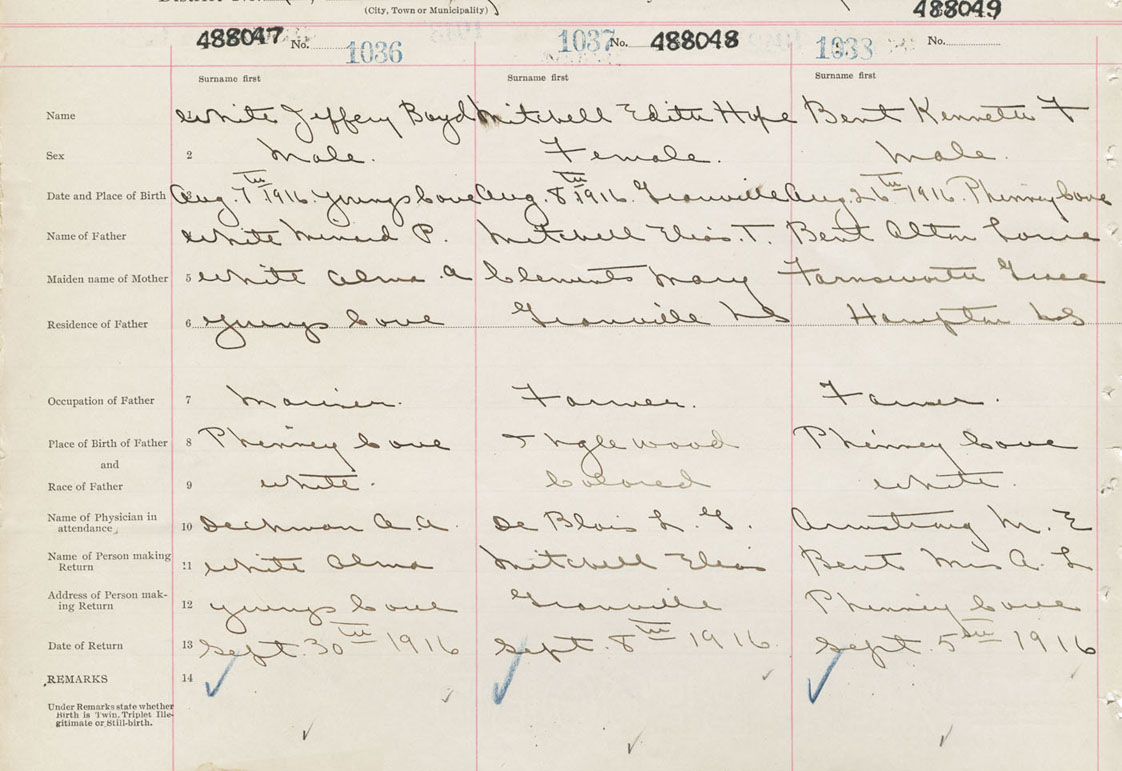 (City, Town or Municipality)
488047 No. 1036 1037 No. 488048 1038 No. 488049
Surname first Surname first Surname first
Name White Jeffery Boyd Mitchell Edith Hope Bent Kenneth F
Sex 2 Male. Female. Male.
Date and Place of Birth 3 Aug. 7th 1916. Youngs Cove Aug. 8th 1916. Granville Aug. 26th 1916. Phinney Cove
Name of Father White Minard P. Mitchell Elias. T. Bent Alton Lorne
Maiden name of Mother 5 White Alma. A Clements Mary Farnsworth Grace
Residence of Father 6 Youngs Cove Granville L S Hampton L S
Occupation of Father 7 Mariner. Farmer. Farmer.
Place of Birth of Father 8 Phinney Cove Inglewood Phinney Cove
and
Race of Father 9 White. Colored White.
Name of Physician in
attendance 10 Dechman A. A. De Blois L. G. Armstrong M. E
Name of Person making
Return 11 White Alma Mitchell Elias Bent Mrs A. L
Address of Person mak-
ing Return 12 Youngs Cove Granville Phinney Cove
Date of Return 13 Sept. 30th 1916 Sept. 8th 1916. Sept. 5th 1916
REMARKS 14
Under Remarks state whether
Birth is Twin, Triplet Ille-
gitimate or Still-birth.